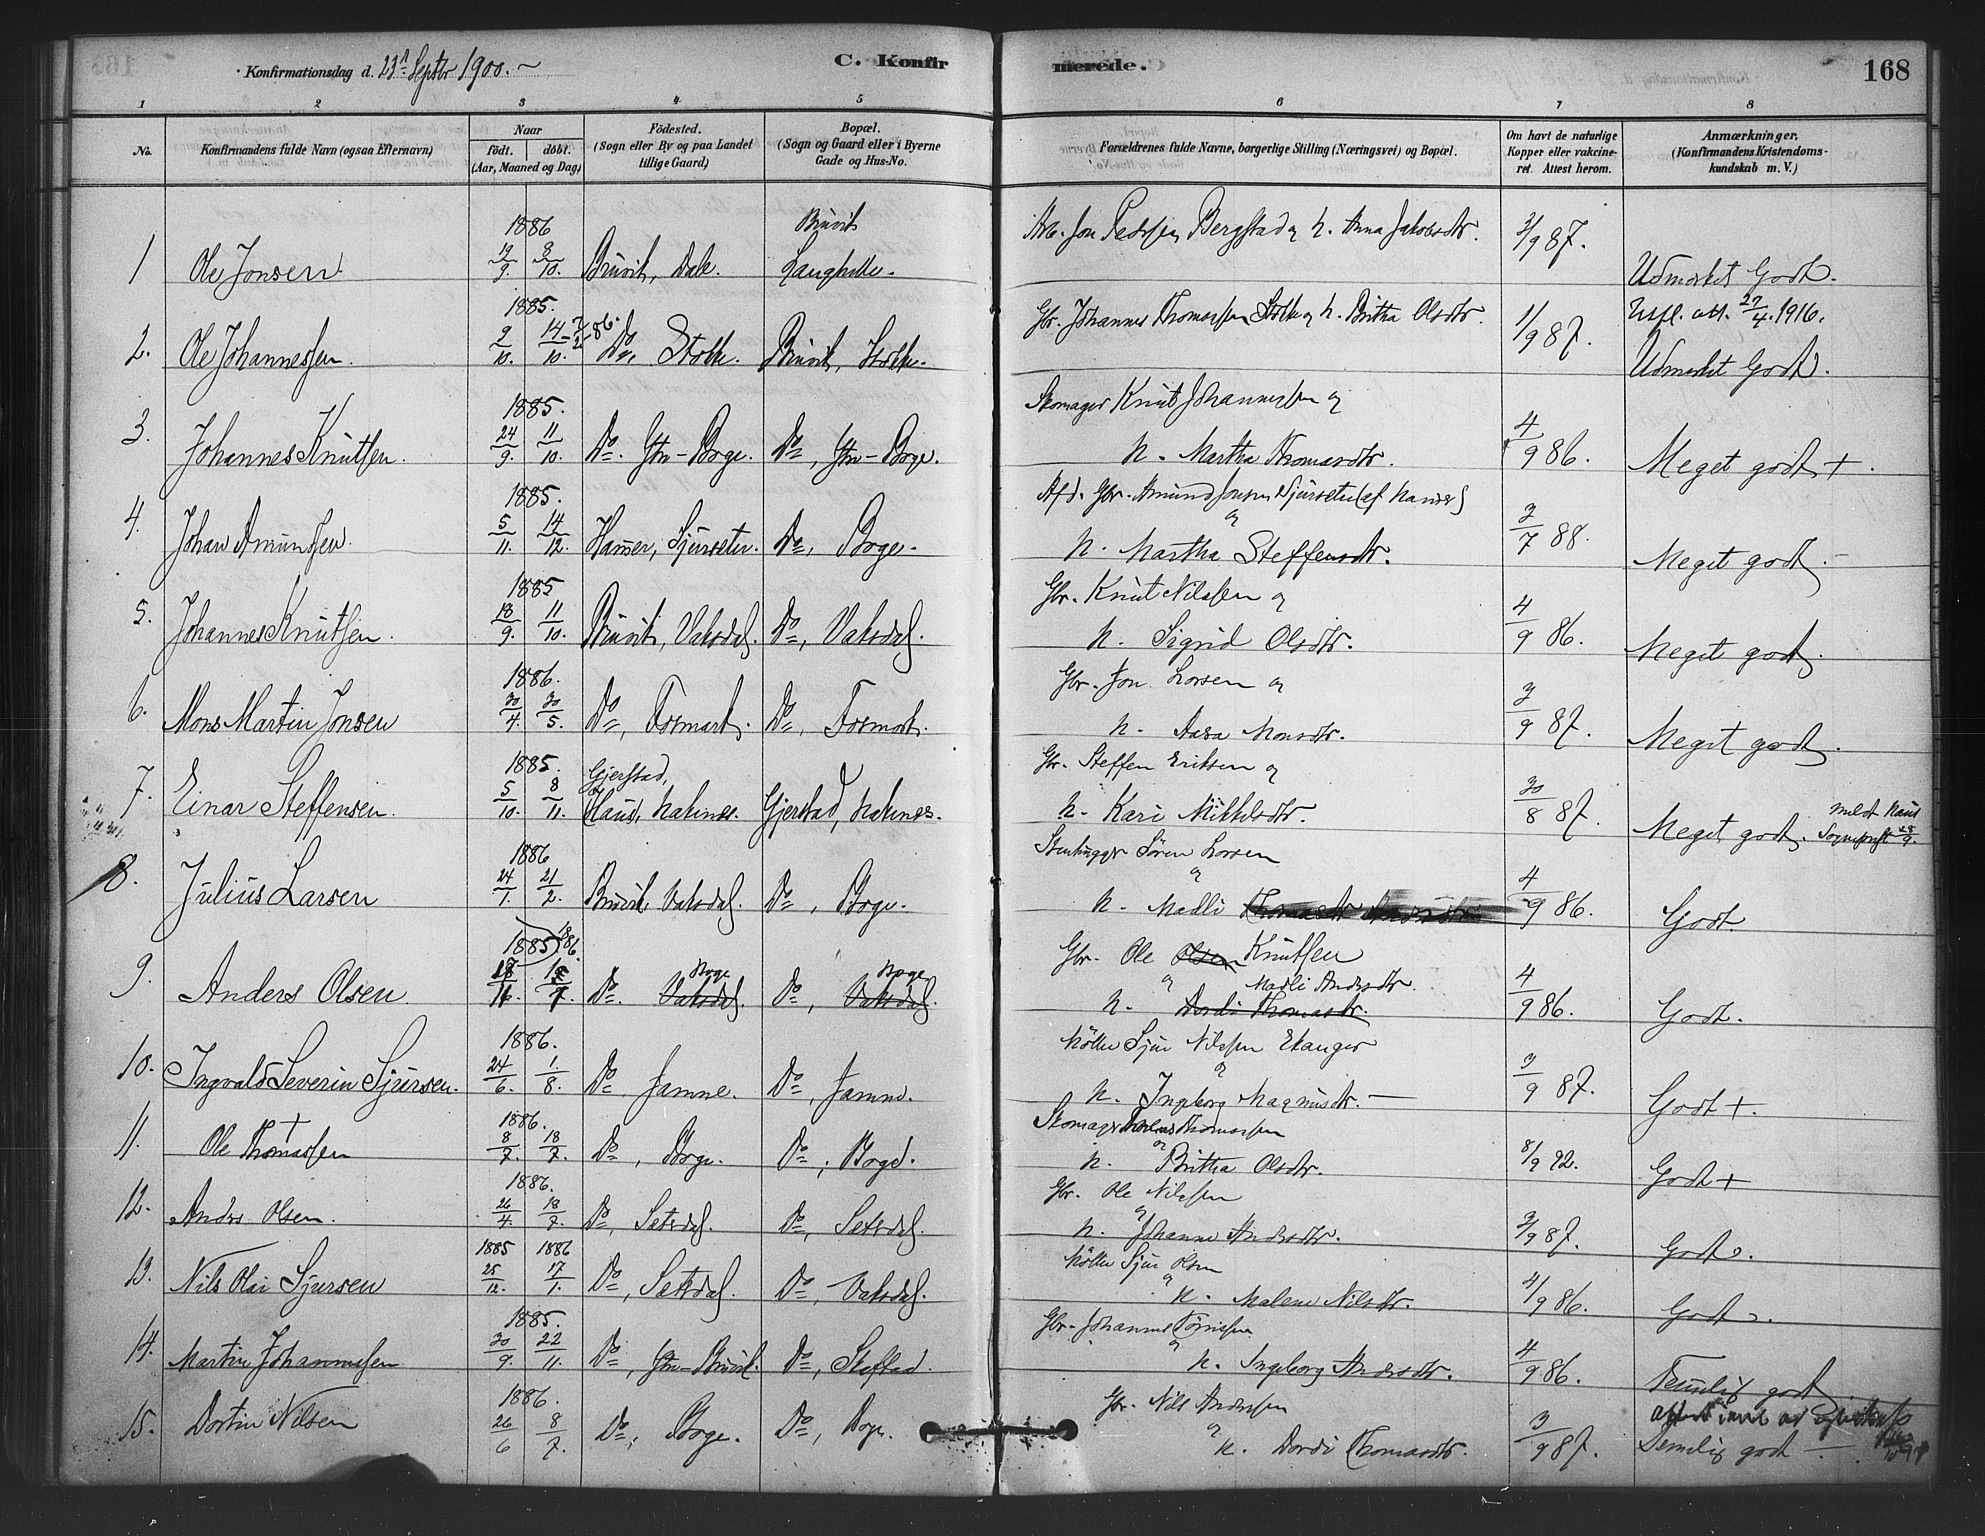 Konfirmationsdag d. 23d Septbr 1900.
C. Konfirmerede.
168
1 2 3 4 5 6 7 8
No.
Konfirmandens fulde Navn (ogsaa Efternavn)
Naar
födt. döbt.
(Aar, Maaned og Dag)
Födested.
(Sogn eller By og paa Landet
tillige Gaard)
Bopæl.
(Sogn og Gaard eller i Byerne
Gade og Hus-No.
Forældrenes fulde Navne, borgerlige Stilling (Næringsvei) og Bopæl.
Om havt de naturlige
Kopper eller vakcine-
ret. Attest herom.
Anmærkninger.
(Konfirmandens Kristendoms-
kundskab m. V.)
1886 Bruvik
1 Ole Jonsen 19/9. 8/10. Bruvik, Dale. Langhelle. Arb. Jon Pedersen Bergstad og h. Anna Jakobsdtr. 2/9 87. Udmerket Godt.
1885. Utfl. att. 27/4. 1916.
2. Ole Johannessen. 2/10. 14/10. Do, Stokke. Bruvik, Stokke. Gbr. Johannes Thomassen Stokke og h. Britha Olsdtr. 1/9 87. Udmerket Godt.
1885. Skomager Knut Johannessen og
3. Johannes Knutsen. 24/9. 11/10. Do. Ytre-Boge. Do, Ytre-Boge. h. Martha Thomasdtr. 4/9 86. Meget godt +.
1885. Afd. Gbr. Amund Jonsen Sjursæter (af Hamer)
og
4. Johan Amundsen. 5/11. 14/12. Hamer, Sjurseter. Do, Boge. h. Martha Steffensdtr. 2/7 88. Meget godt.
1885 Gbr. Knut Nilssen og
5. Johannes Knutsen. 18/9. 11/10. Bruvik, Vaksdal. Do, Vaksdal. h. Sigrid Olsdtr. 4/9 86. Meget godt.
1886. Gbr. Jon Larsen og
6. Mons Martin Jonsen 30/4. 30/5. Do, Fosmark. Do, Fosmark. h. Aasa Monsdtr. 3/9 87. Meget godt.
1885. Gjerstad, Gbr. Steffen Eriksen og
7. Einar Steffensen. 5/10. 8/11. Haus, Hatenes. Gjerstad, Hatenes. h. Kari Mikkelsdtr. 30/8 87. Meget godt. meldt Haus
Sogneprest 28/9.
1886 Stenhugger Sören Larsen
og
8. Julius Larsen 24/1. 21/2. Bruvik, Vaksdal. Do, Boge. h. Madli Thomasdtr 4/9 86. Godt.
1885 1886. Gbr. Ole Olsen Knutsen
Boge Boge og Madli Andersdtr.
9. Anders Olsen. Do. Vaksdal. Do, Vaksdal. h. Dordi Thomasdtr. 4/9 86. Godt.
1886. Möller Sjur Nilssen Ekanger
og
10. Ingvald Severin Sjursen. 24/6. 1/8. Do, Jamne. Do, Jamne. h. Ingeborg Magnusdtr. 3/9 87. Godt +.
1886. Skomager Thomassen
og
11. Ole Thomassen 8/7. 18/7. Do, Boge. Do, Boge. h. Britha Olsdtr. 8/9 92. Godt +
1886. Gbr. Ole Nilssen
og
12. Anders Olsen. 26/4. 18/7. Do, Setsdal. Do, Setsdal. h. Johanne Andersdtr. 3/9 87. Godt.
1885 1886 Möller Sjur Olsen
og
13. Nils Olai Sjursen 25/12. 17/1. Do, Setsdal. Do, Vaksdal. h. Malene Nilsdtr. 4/9 86. Godt.
1885. Gbr. Johannes
og
14. Martin Johannessen 30/9. 22/11. Do, Ytre-Bruvik. Do, Skeftad. h. Ingeborg Andersdtr. 4/9 86. Temlig godt
1886. Gbr. Nils Anderssen
og
15. Dortin Nilsen 26/6 8/7. Do, Boge. Do, Boge. h. Dordi Thomasdtr. 3/9 87. Temlig godt